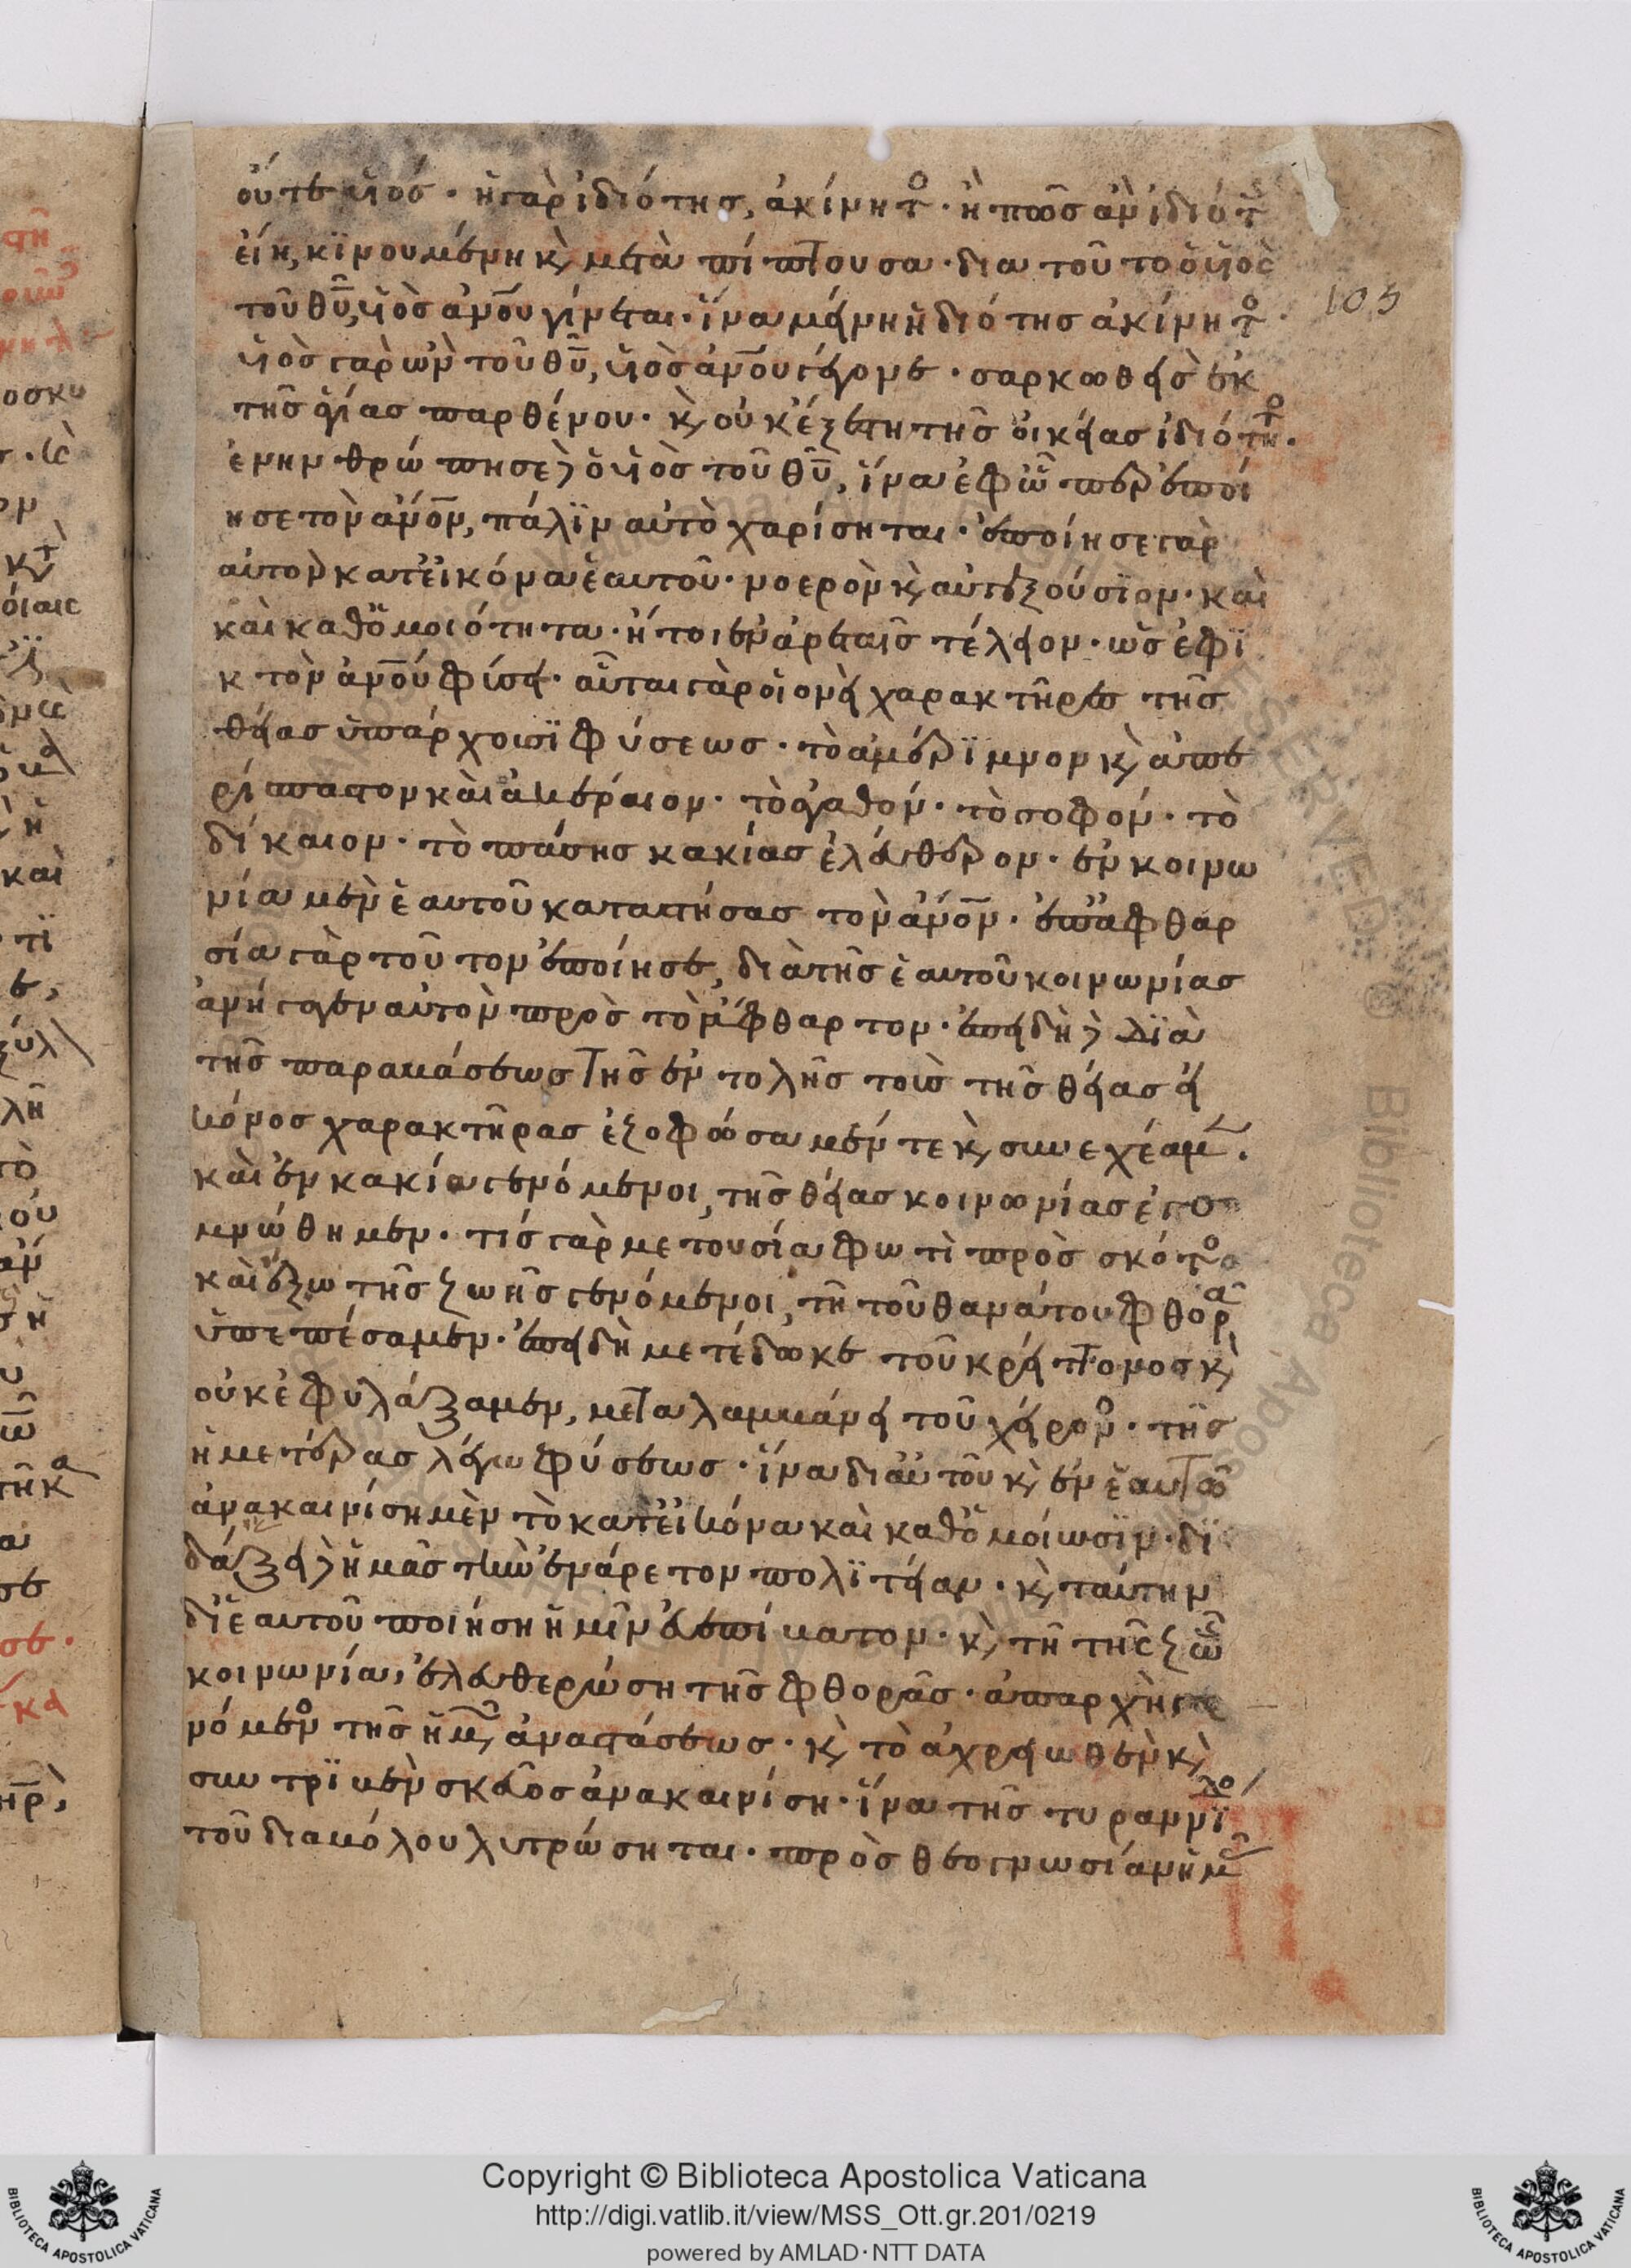 οὔτε υἱός · ἡ γὰρ ἰδιότης, ἀκίνητο · ἢ πῶς ἂν ἰδιότης
εἴη, κϊνουμένη κ̀ μεταπίπτουσα · δια τοῦτο ὁ υἱὸς
τοῦ θῡ, υἱὸς ἀνο̄υ γίνεται · ἵνα μείνη ἡ ἰδιότης ἀκίνητο ·
υἱὸς γὰρ ὢν τοῦ θῡ, υἱὸς ἀνο̄υ γέγονε · σαρκωθεὶς ἐκ
τῆς ἁγίας παρθένου · κ̀ οὐκ ἐξέστη τῆς οἰκείας ἰδιότητο ·
ἐνηνθρώπησε δὲ ὁ υἱὸς τοῦ θῡ, ἵνα ἐφ ὧ περ ἐποί
ησε τὸν ἀνο̄ν, πάλϊν αὐτὸ χαρίσηται · ἐποίησε γὰρ
αὐτὸν κατ εἰκόνα ἑαυτοῦ · νοερὸν κ̀ αὐτεξούσϊον · καὶ
καὶ καθ ὁμοιότητα · ἤτοι ἐν ἀρεταῖς τέλειον · ὡς ἐφϊ
κτὸν ἀνο̄υ φύσει · αὗται γὰρ οἱονεὶ χαρακτῆρες τῆς
θείας ὑπάρχουσϊ φύσεως · τὸ ἀμέρϊμνον κ̀ ἀπε
ρίσπαστον καὶ ἀκέραιον · τὸ ἀγαθόν · τὸ σοφόν · τὸ
δίκαιον · τὸ πάσης κακίας ἐλεύθερον · ἐν κοινω
νία μὲν ἑαυτοῦ καταστήσας τὸν ἀνο̄ν · ἐπ ἀφθαρ
σία γὰρ τοῦτον ἐποίησε, διὰ τῆς ἑαυτοῦ κοινωνίας
ἀνήγαγεν αὐτὸν πρὸς τὸ ἄφθαρτον · ἐπειδὴ δὲ δϊὰ
τῆς παραβάσεως τῆς ἐντολῆς τοὺς τῆς θείας εἰ
κόνος χαρακτῆρας ἐζοφώσαμέν τε κ̀ συνεχέαμ ·
καὶ ἐν κακία γενόμενοι, τῆς θείας κοινωνίας ἐγυ
μνώθημεν · τίς γὰρ μετουσία φωτὶ πρὸς σκότο
καὶ ἔξω τῆς ζωῆς γενόμενοι, τῆ τοῦ θανάτου φθορᾶ
ὑπεπέσαμεν · ἐπειδὴ μετέδωκε τοῦ κρείττονος κ̀
οὐκ ἐφυλάξαμεν, μεταλαμβάνει τοῦ χείρονο · τῆς
ἡμετέρας λέγω φύσεως · ἵνα δι αὐτοῦ κ̀ ἐν ἑαυτῶ
ἀνακαινίση μὲν τὸ κατ εἰκόνα καὶ καθ ὁμοίωσϊν · δϊ
δάξει δὲ ἡμᾶς τὴν ἐνάρετον πολϊτείαν · κ̀ ταύτην
δι ἑαυτοῦ ποιήση ἡμῖν εὐεπίβατον · κ̀ τῆ τῆς ζωῆς
κοινωνία, ἐλευθερώση τῆς φθορᾶς · ἀπαρχὴ γε
νόμενο τῆς ἡμ̃, ἀναστάσεως · κ̀ τὸ ἀχρειωθὲν κ̀
συντρϊβὲν σκεῦος ἀνακαινίση · ἵνα τῆς τυραννϊδο
τοῦ διαβόλου λυτρώσηται · πρὸς θεογνωσίαν ἡμ̃
105
Copyright © Biblioteca Apostolica Vaticana
http://digi.vatlib.it/view/MSS_Ott.gr.201/0219
powered by AMLAD·NTT DATA
BIBLIOTECA APOSTOLICA VATICANA
BIBLIOTECA APOSTOLICA VATICANA